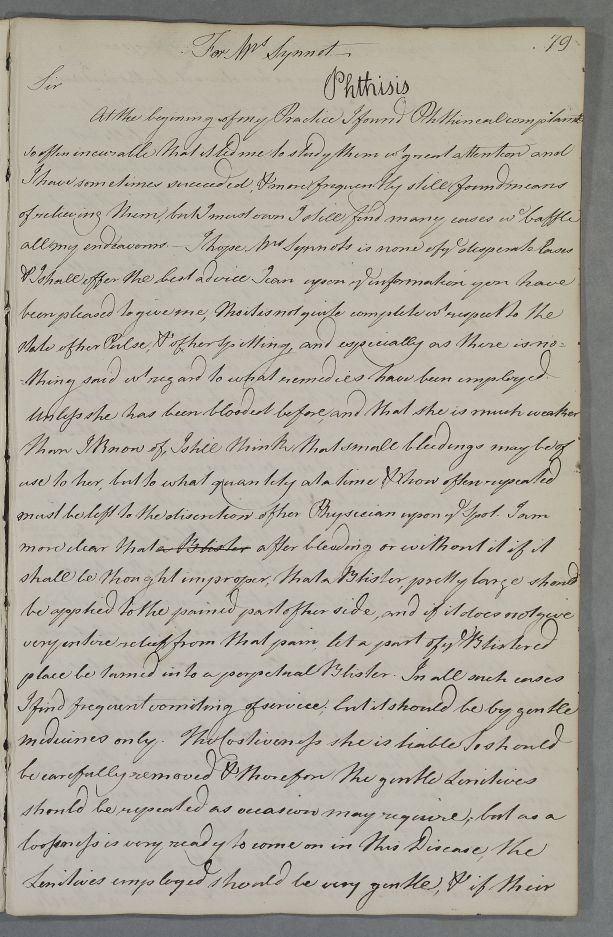 For Mrs Synnot
79
Sir
Phthisis
At the begining of my Practice I found Phthincal complaints
so often incurable that it led me to study them wt great attention and
I have sometimes succeeded, & more frequently still found means
of relieving them, but I must own I still find many cases wc baffle
all my endeavours. - I hope Mrs Synnots is none of ye desperate Cases
& I shall offer the best advice I can upon ye information you have
been pleased to give me, tho it is not quite complete wt respect to the
state of her Pulse, & of her spitting, and especially as there is no=
=thing said wt regard to what remedies have been employed.
Unless she has been blooded before, and that she is much weaker
than I know of, I still think that small bleedings may be of
use to her, but to what quantity at a time & how often repeated
must be left to the discretion of her Physician upon ye Spot. I am
more clear that a Blister after bleeding or without it if it
shall be thought improper, that a Blister, pretty large should
be applied to the pained part of her side, and if it does not give
very entire relief from that pain, let a part of ye Blistered
place be turned into a perpetual Blister. In all such cases
I find frequent vomiting of service, but it should be by gentle
medicines only. The Costiveness she is liable to should
be carefully removed & therefore the gentle Lenitives
should be repeated as occasion may require, but as a
looseness is very ready to come on in this Disease, the
Lenitives employed should be very gentle, & if their